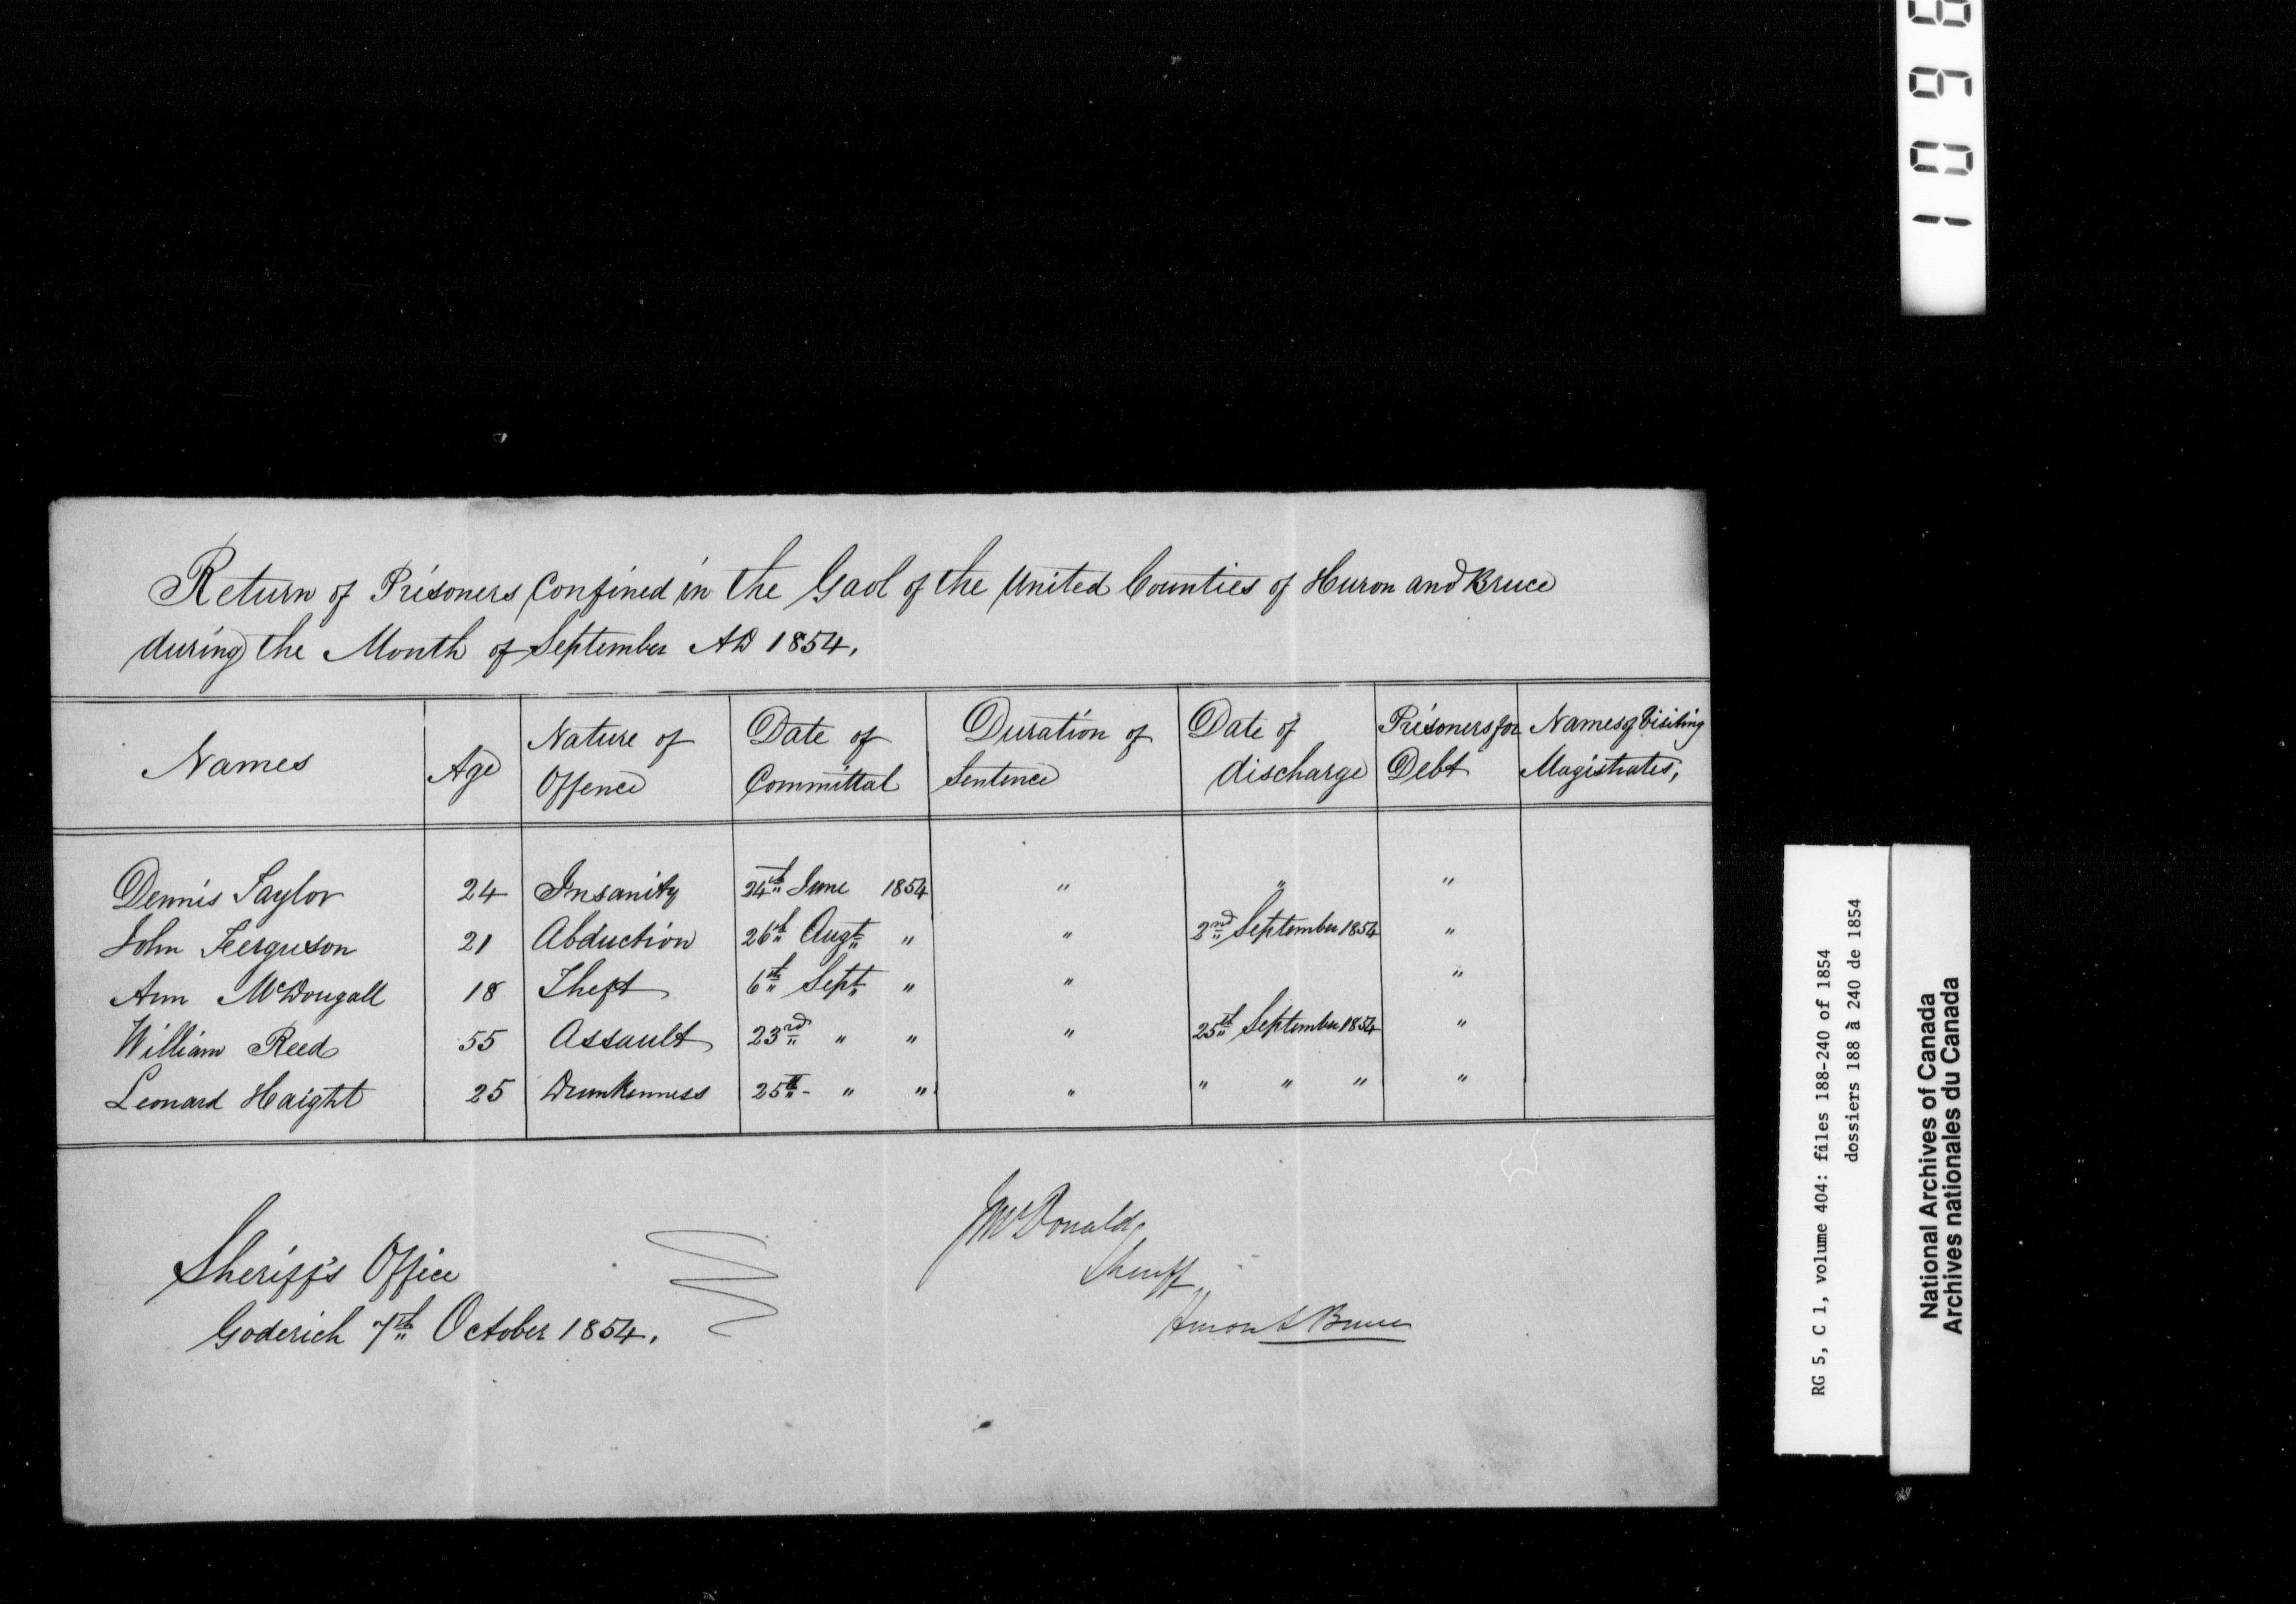 Return of Prisoners Confined in the Gaol of the United Counties of Huron and Bruce
during the Month of September AD 1854.
Names | Age | Nature of Offence | Date of Committal | Duration of Sentence | Date of discharge | Prisoners for Debt | Names of Visiting Magistrates,
Dennis Taylor | 24 | Insanity | 24th June 1854 | " | " | "
John Ferguson | 21 | Abduction | 26th Augt " | " | 2nd September 1854 | "
Ann McDougall | 18 | Theft | 6th Sept " | " | | "
William Reed | 55 | Assault | 23rd " " | " | 25th September 1854 | "
Leonard Haight | 25 | Drunkenness | 25th - " " | " | " " " | "
Sheriff's Office
Goderich 7th October 1854.
J McDonald,
Sheriff,
Huron & Bruce
1096
RG 5, C 1, volume 404: files 188-240 of 1854
dossiers 188 à 240 de 1854
National Archives of Canada
Archives nationales du Canada